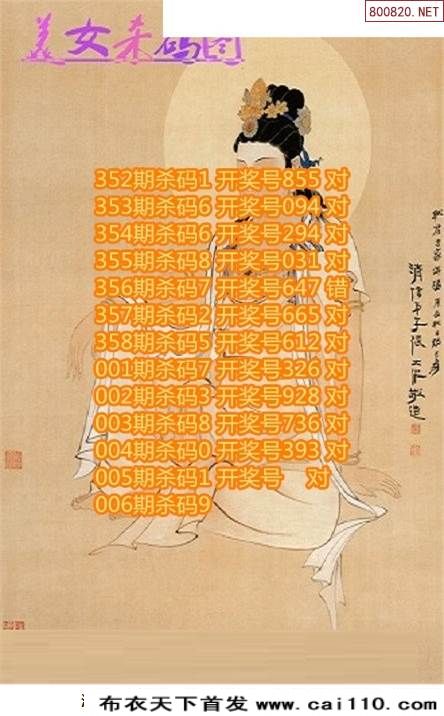 800820.NET
美女杀码图
352期杀码1 开奖号855 对
353期杀码6 开奖号094 对
354期杀码6 开奖号294 对
355期杀码8 开奖号031 对
356期杀码7 开奖号647 错
357期杀码2 开奖号665 对
358期杀码5 开奖号612 对
001期杀码7 开奖号326 对
002期杀码3 开奖号928 对
003期杀码8 开奖号736 对
004期杀码0 开奖号393 对
005期杀码1 开奖号 对
006期杀码9
布衣天下首发 www.cai110.com